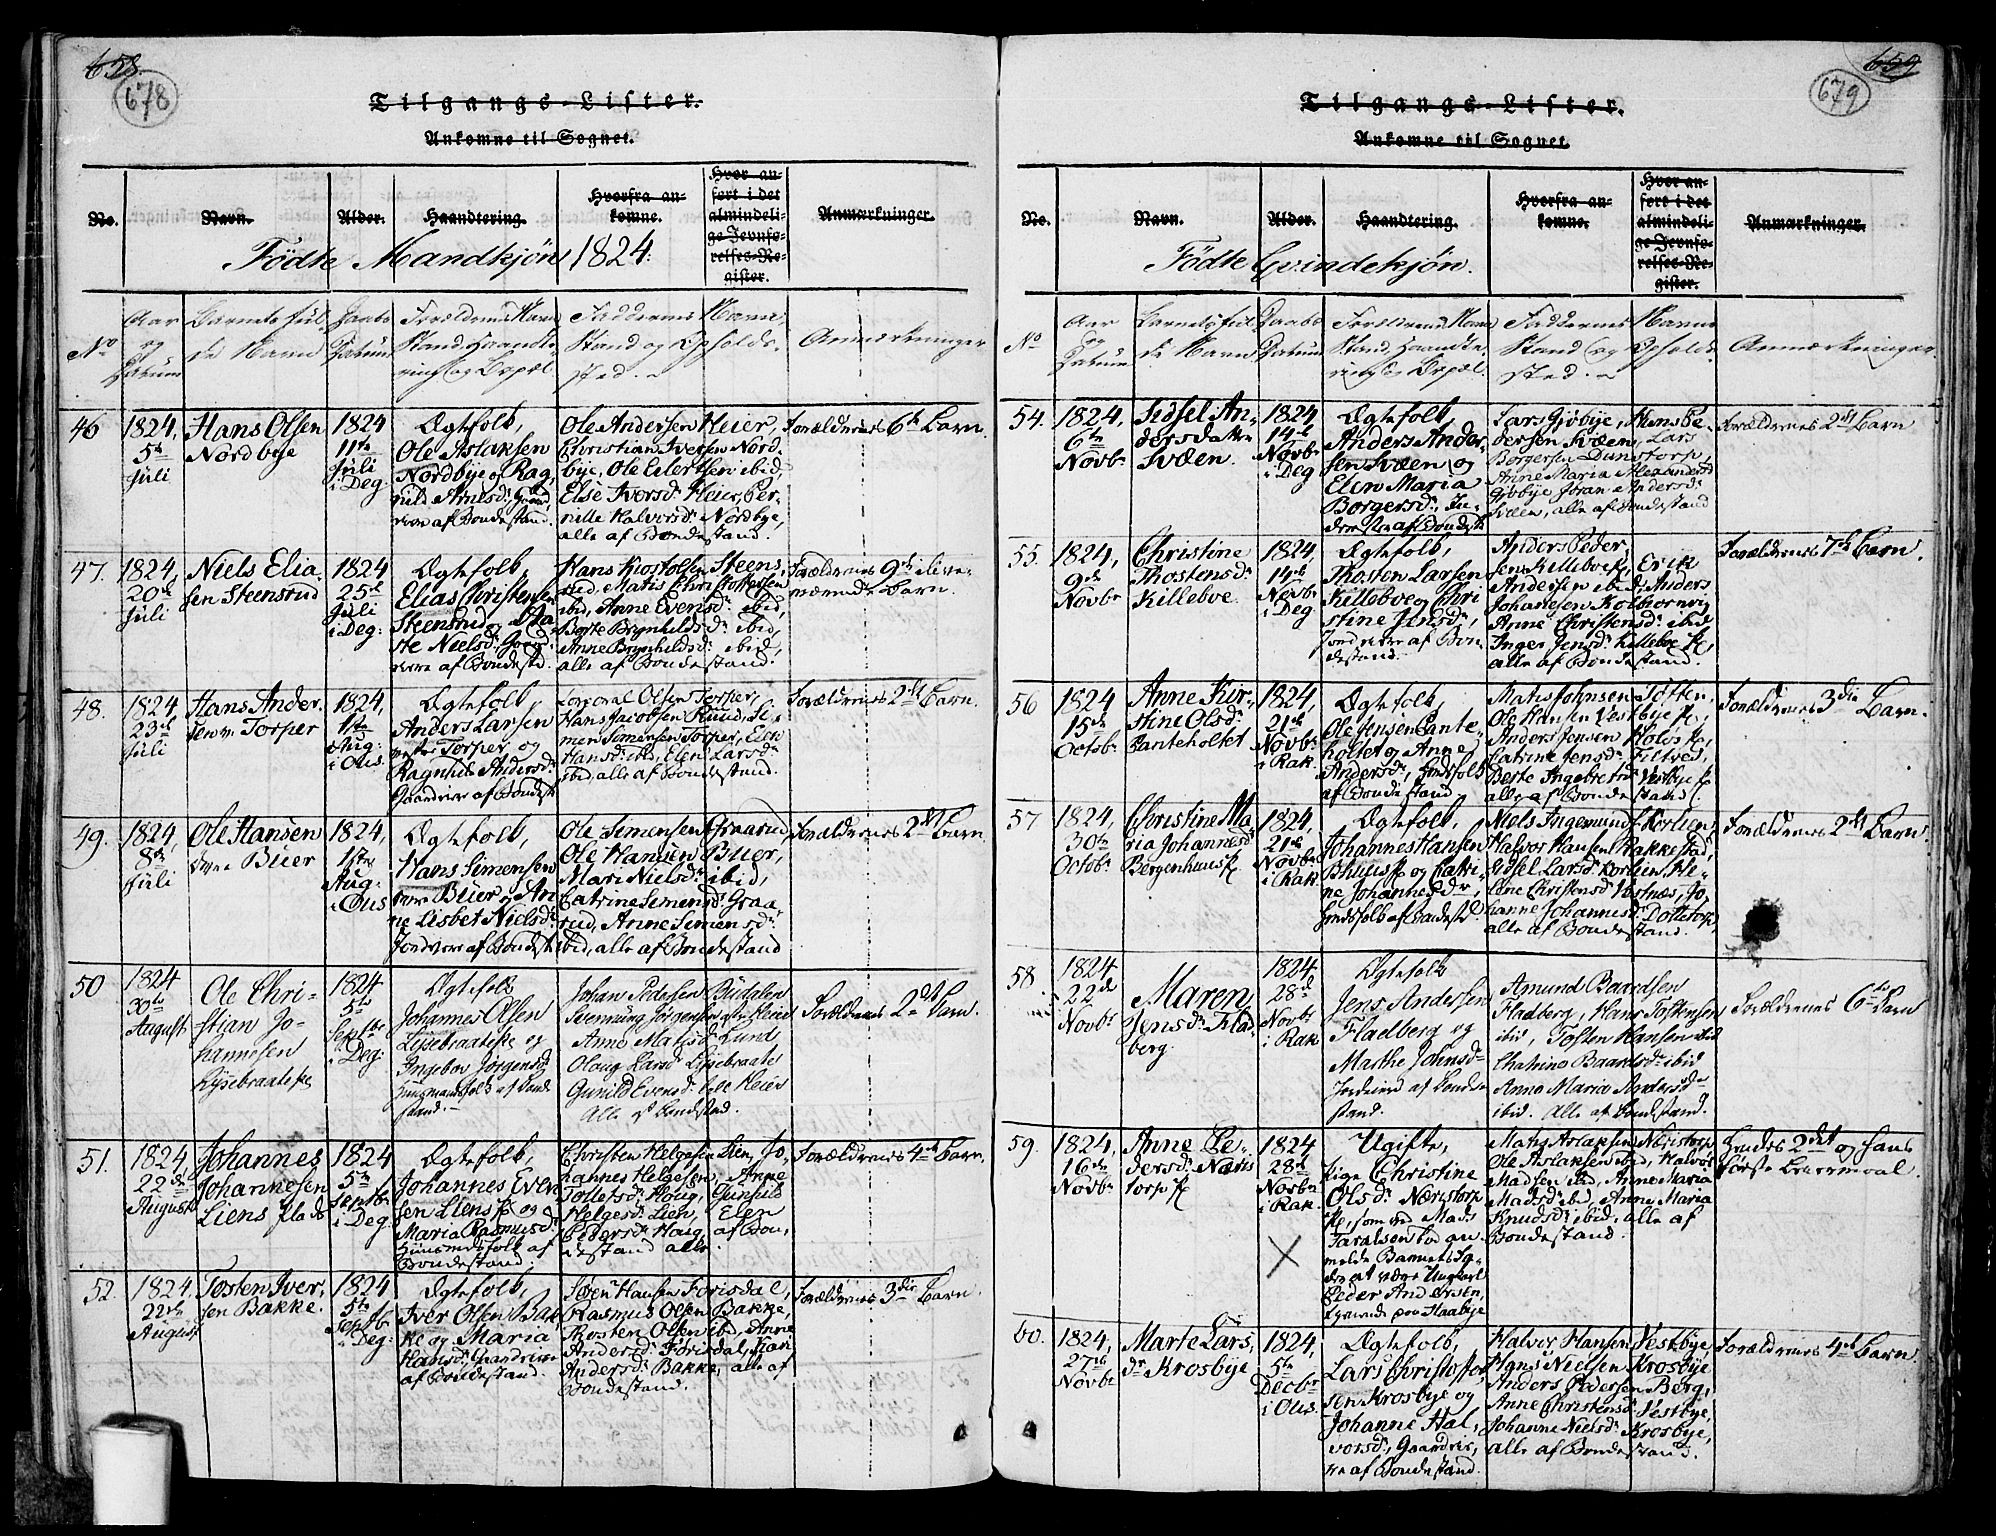 658.
678
Tilgangs-Lister.
Ankomne til Sognet.
No.
Navn.
Alder.
Haandtering.
Hvorfra an-
komne.
Hvor an-
ført i det
almindeli-
ge Jevnfø-
relses-Re-
gister.
Anmærkninger.
Fødte Mandkjøn 1824.
No
Aar
og
Datum
Barnets ful
de Navn
Daabs
Datum
Forældrenes Navn
Stand Haandte
ring og Bopæl
Faddernes Navn,
Stand og Opholds-
sted.
Anmærkninger
46
1824,
5te
Juli
Hans Olsen
Nordbye
1824
11te
Juli
i Deg:
Ægtefolk,
Ole Aslaksen
Nordbye og Rag
nild Arnesdr, Gaard
rvere af Bondestand.
Ole Andersen Heier,
Christian Iversen Nord-
bye, Ole Eilertsen ibid,
Else Iversdr Heier, Per-
nille Halvorsdr Nordbye,
alle af Bondestand.
Forældrenes 6te Barn.
47.
1824,
20de
Juli
Niels Elia
sen Steensrud
1824
25de
Juli
i Deg:
Ægtefolk,
Elias Christensen
Steensrud og
Nielsdr
af Bondestd.
Hans Kiostolsen Steens
rud, Matis Christophersen
ibid, Anne Evensdr ibid,
Berte Brynhildsdr ibid,
Anne Brynhildsdr ibid,
alle af Bondestand.
Forældrenes 9de ileve-
værende Barn.
48.
1824
23de
Juli
Hans Ander
sen Torper
1824,
1ste
Aug:
i Ous.
Ægtefolk,
Anders Larsen
Torper og
Ragnhild Andersdr
af Bondest
Corporal Olsen Torper,
Hans Jacobsen Ruud, Si-
men Simensen Torper, Elen
Hansdr ibid, Elen Larsdr
ibid, alle af Bondestand.
Forældrenes 2det Barn.
49.
1824,
8de
Juli
Ole Hansen
Buer
1824,
1ste
Aug:
i Ous
Ægtefolk,
Hans Simensen
Buer og An
ne Lisbet Nielsdr
af Bondest
Ole Simensen Graarud
Ole Hansen Buer,
Mari Nielsdr ibid,
Catrine Simensdr Graa-
rud, Anne Simensdr
ibid, alle af Bondestand
Forældrenes 2det Barn
50
1824
30te
August
Ole Chri-
stian Jo-
hannesen
Lysebraatepe
1824
5te
Septbr
i Deg:
Ægtefolk
Johannes Olsen
Lysebraatepe og
Ingebor Jørgensdr
Huusmandsfolk af Bonde
stand.
Johan Pedersen Büdalen
Svenning Jørgensen
Anne Matisdr Lund
Olaug Larsdr Lysebraate
Gunild Evensdr Heier
Alle af Bondestand.
Forældrenes 2det Barn.
51.
1824,
22de
August
Johannes
Johannesen
Liens plads
1824
5te
Septbr
i Deg.
Ægtefolk,
Johannes Even
sen Liens og
Maria Rasmusdr
Huusmdsfolk af
Bondestand.
Christen Helgesen Lien, Jo-
hannes Helgesen, Anne
Tolletsdr Houg, Gunhild
Helgesdr Lien, Elen
Pedersdr Haug, af Bon-
destand alle.
Forældrenes 4de Barn.
52.
1824.
22de
August
Tosten Iver
sen Bakke.
1824
5te
Septbr
i Deg:
Ægtefolk,
Iver Olsen Bak
ke og Maria
Hansdr
af Bondestand.
Søren Hansen Forisdal,
Rasmus Olsen Bakke,
Thosten Olsen ibid, Anne
Andersdr Forisdal, Kari
Andersdr Bakke, alle af
Bondestand.
Forældrenes 3die Barn.
659
679
Tilgangs-Lister.
Ankomne til Sognet.
No.
Navn.
Alder.
Haandtering.
Hvorfra an-
komne.
Hvor an-
ført i det
almindeli-
ge Jevnfø-
relses-Re-
gister.
Anmærkninger.
Fødte Qvindekjøn.
No
Aar
og
Datum
Barnets ful
de Navn
Daabs
Datum
Forældrenes Navn
Stand, Haandte
ring og Bopæl.
Faddernes Navn
Stand og Opholds
sted.
Anmærkninger.
54.
1824,
6te
Novbr
Sidsel An-
dersdatter
Svæen.
1824
14de
Novbr
i Deg
Ægtefolk,
Anders Ander
sen Svæen og
Elen Maria
Borgersdr
af Bondest
Lars Gjøbye, Hans Pe-
dersen Svæen, Lars
Borgersen Dunstorp,
Anne Maria Alexandersd
Gjøbye, Joran e Andersdr
Svæen, alle af Bondestand
Forældrenes 2det Barn
55.
1824,
9de
Novbr
Christine
Thostensdr
Killeboe.
1824
14de
Novbr
i Deg
Ægtefolk,
Thosten Larsen
Killeboe og Chri
stine Jensdr,
af Bon-
destand.
Anders Peder
sen Killeboe, Erik
Andersen ibid, Anders
Johannesen Kolbiornvig
Anne Christensdr ibid
Inger Jensdr Killeboe,
alle af Bondestand.
Forældrenes 7de Barn.
56
1824
15de
Octobr
Anne Kir-
stine Olsdr
Panteholtet
1824,
21de
Novbr
i Rak
Ægtefolk,
Ole Jensen Pante-
holtet og Anne
Andersdr,
af Bondestand
Matis Johnsen Toften,
Ole Hansen Vestbye,
Anders Jensen Holds,
Catrine Jensdr Filtved,
Berte Ingebretsdr Vestbye
alle af Bondestand.
Forældrenes 3die Barn.
57
1824,
30te
Octobr
Christine Ma
ria Johannesdr
Bergenhuus
1824,
21de
Novbr
i Rak
Ægtefolk,
Johannes Hansen
Bhuus og Catri-
ne Johannesdr,
af Bondestd.
Niels Ingemunds Korlien,
Halvor Hansen Bakkestad,
Sidsel Larsdr Korlien, He-
lene Christensdr Vestnæs, Jo-
hanne Johannesdr Dottetorp,
alle af Bondestand.
Forældrenes 2det Barn.
58.
1824
22de
Novbr
Maren
Jensdr Flad
berg.
1824
28de
Novbr
i Rak
Ægtefolk
Jens Andersen
Fladberg og
Marthe Johnsdr
af Bonde
stand.
Amund Baardsen
Fladberg, Hans Tostensen
ibid, Tosten Hansen ibid
Chatrine Baardsdr ibid
Anne Maria Andersdr
ibid. Alle af Bondestand.
Forældrenes 6te Barn
59.
1824,
16de
Novbr
Anne Pe-
dersdr Næris
torp
1824
28de
Novbr
i Rak.
Ugifte,
Pige Christine
Olsdr Næristorp
som ved Mads
Taralsen lod an
melde Barnets Fa-
der at være Ungkarl
Peder Andersen,
tjenende paa Haabye
Matis Aslaksen Næristorp,
Ole Aslaksen ibid, Halvor
Madsen ibid, Anne Maria
Madsdr ibid, Anne Maria
Knudsdr ibid, alle af
Bondestand.
Hendes 2det og hans
første Leiermaal
60.
1824,
27de
Novbr
Marte Lars
dr Krosbye
1824,
5te
Decbr
i Ous.
Ægtefolk,
Lars Christoffer
sen Krosbye og
Johanne Hal
vorsdr, Gaardrve
re af Bondestand.
Halvor Hansen Vestbye,
Hans Nielsen Krosbye
Anders Pedersen Berg,
Anne Christensdr Vestbye,
Johanne Nielsdr Krosbye,
alle af Bondestand.
Forældrenes 4de Barn.